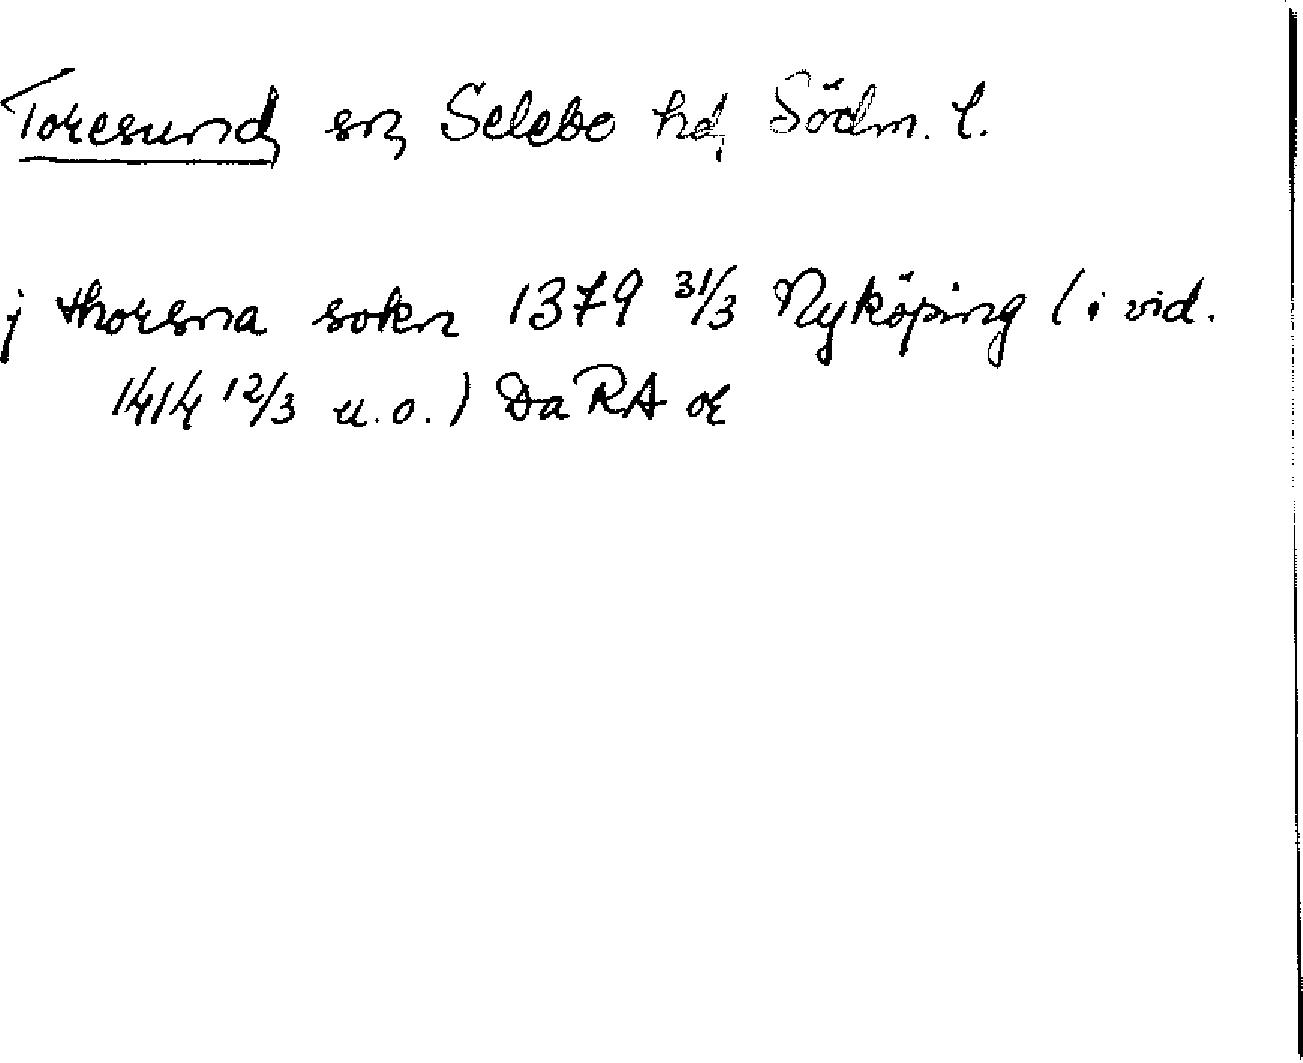 Toresund, sn, Selebo hd, Södm. l.
j thorsna sokn 1379 31/3 Nyköping (i vid.
1414 12/3 u.o.) Da RA or